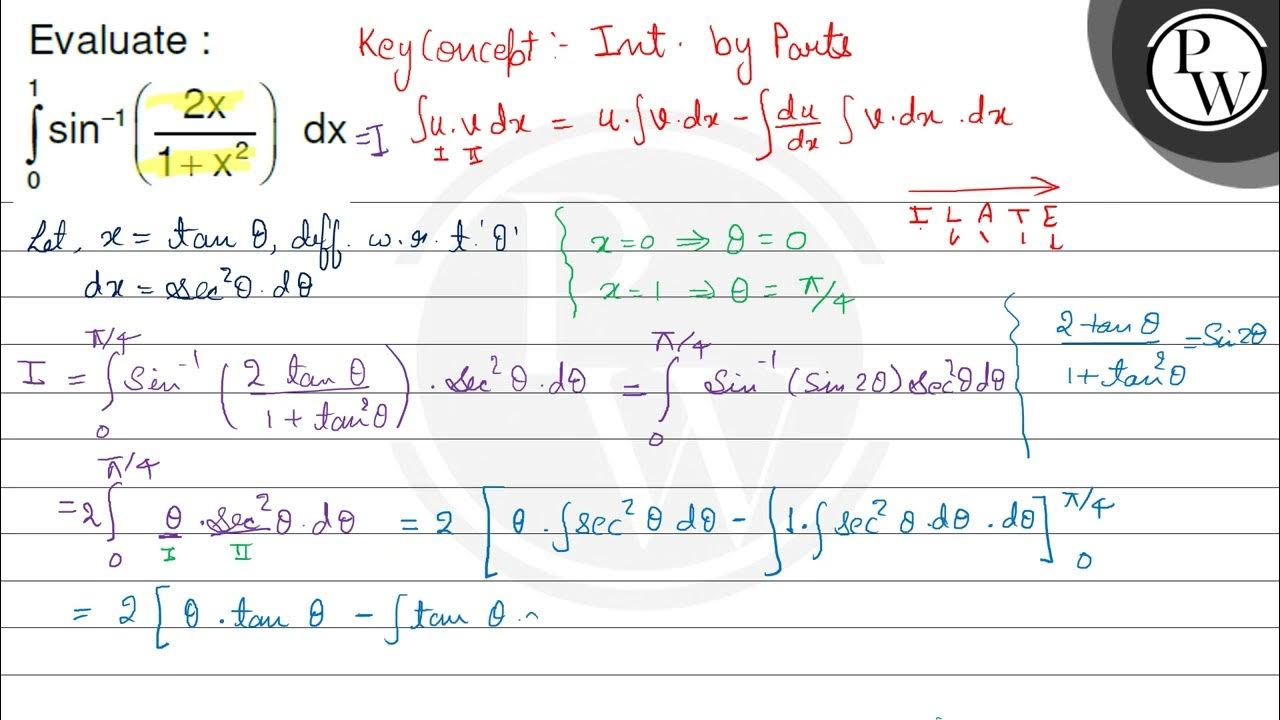 Evaluate :
∫₀¹ sin⁻¹ (2x / 1 + x²) dx = I
Key Concept :- Int. by Parts
∫u.v dx = u.∫v.dx - ∫ du/dx ∫ v.dx .dx
I II
I L A T E
PW
Let, x = tan θ, diff. w.r.t. 'θ'
dx = sec²θ.dθ
x = 0 ⇒ θ = 0
x = 1 ⇒ θ = π/4
I = ∫₀^π/4 sin⁻¹ (2 tan θ / 1 + tan²θ) . sec²θ.dθ = ∫₀^π/4 sin⁻¹ (sin 2θ) sec²θ dθ
2 tan θ / 1 + tan²θ = Sin 2θ
= 2 ∫₀^π/4 θ . sec²θ.dθ = 2 [θ.∫sec²θ dθ - ∫1.∫sec²θ.dθ.dθ]₀^π/4
I II
= 2 [θ.tan θ - ∫tan θ.